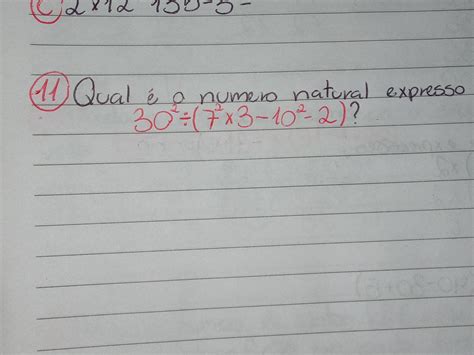 11 Qual é o numero natural expresso
30²÷(7²x3-10²-2)?